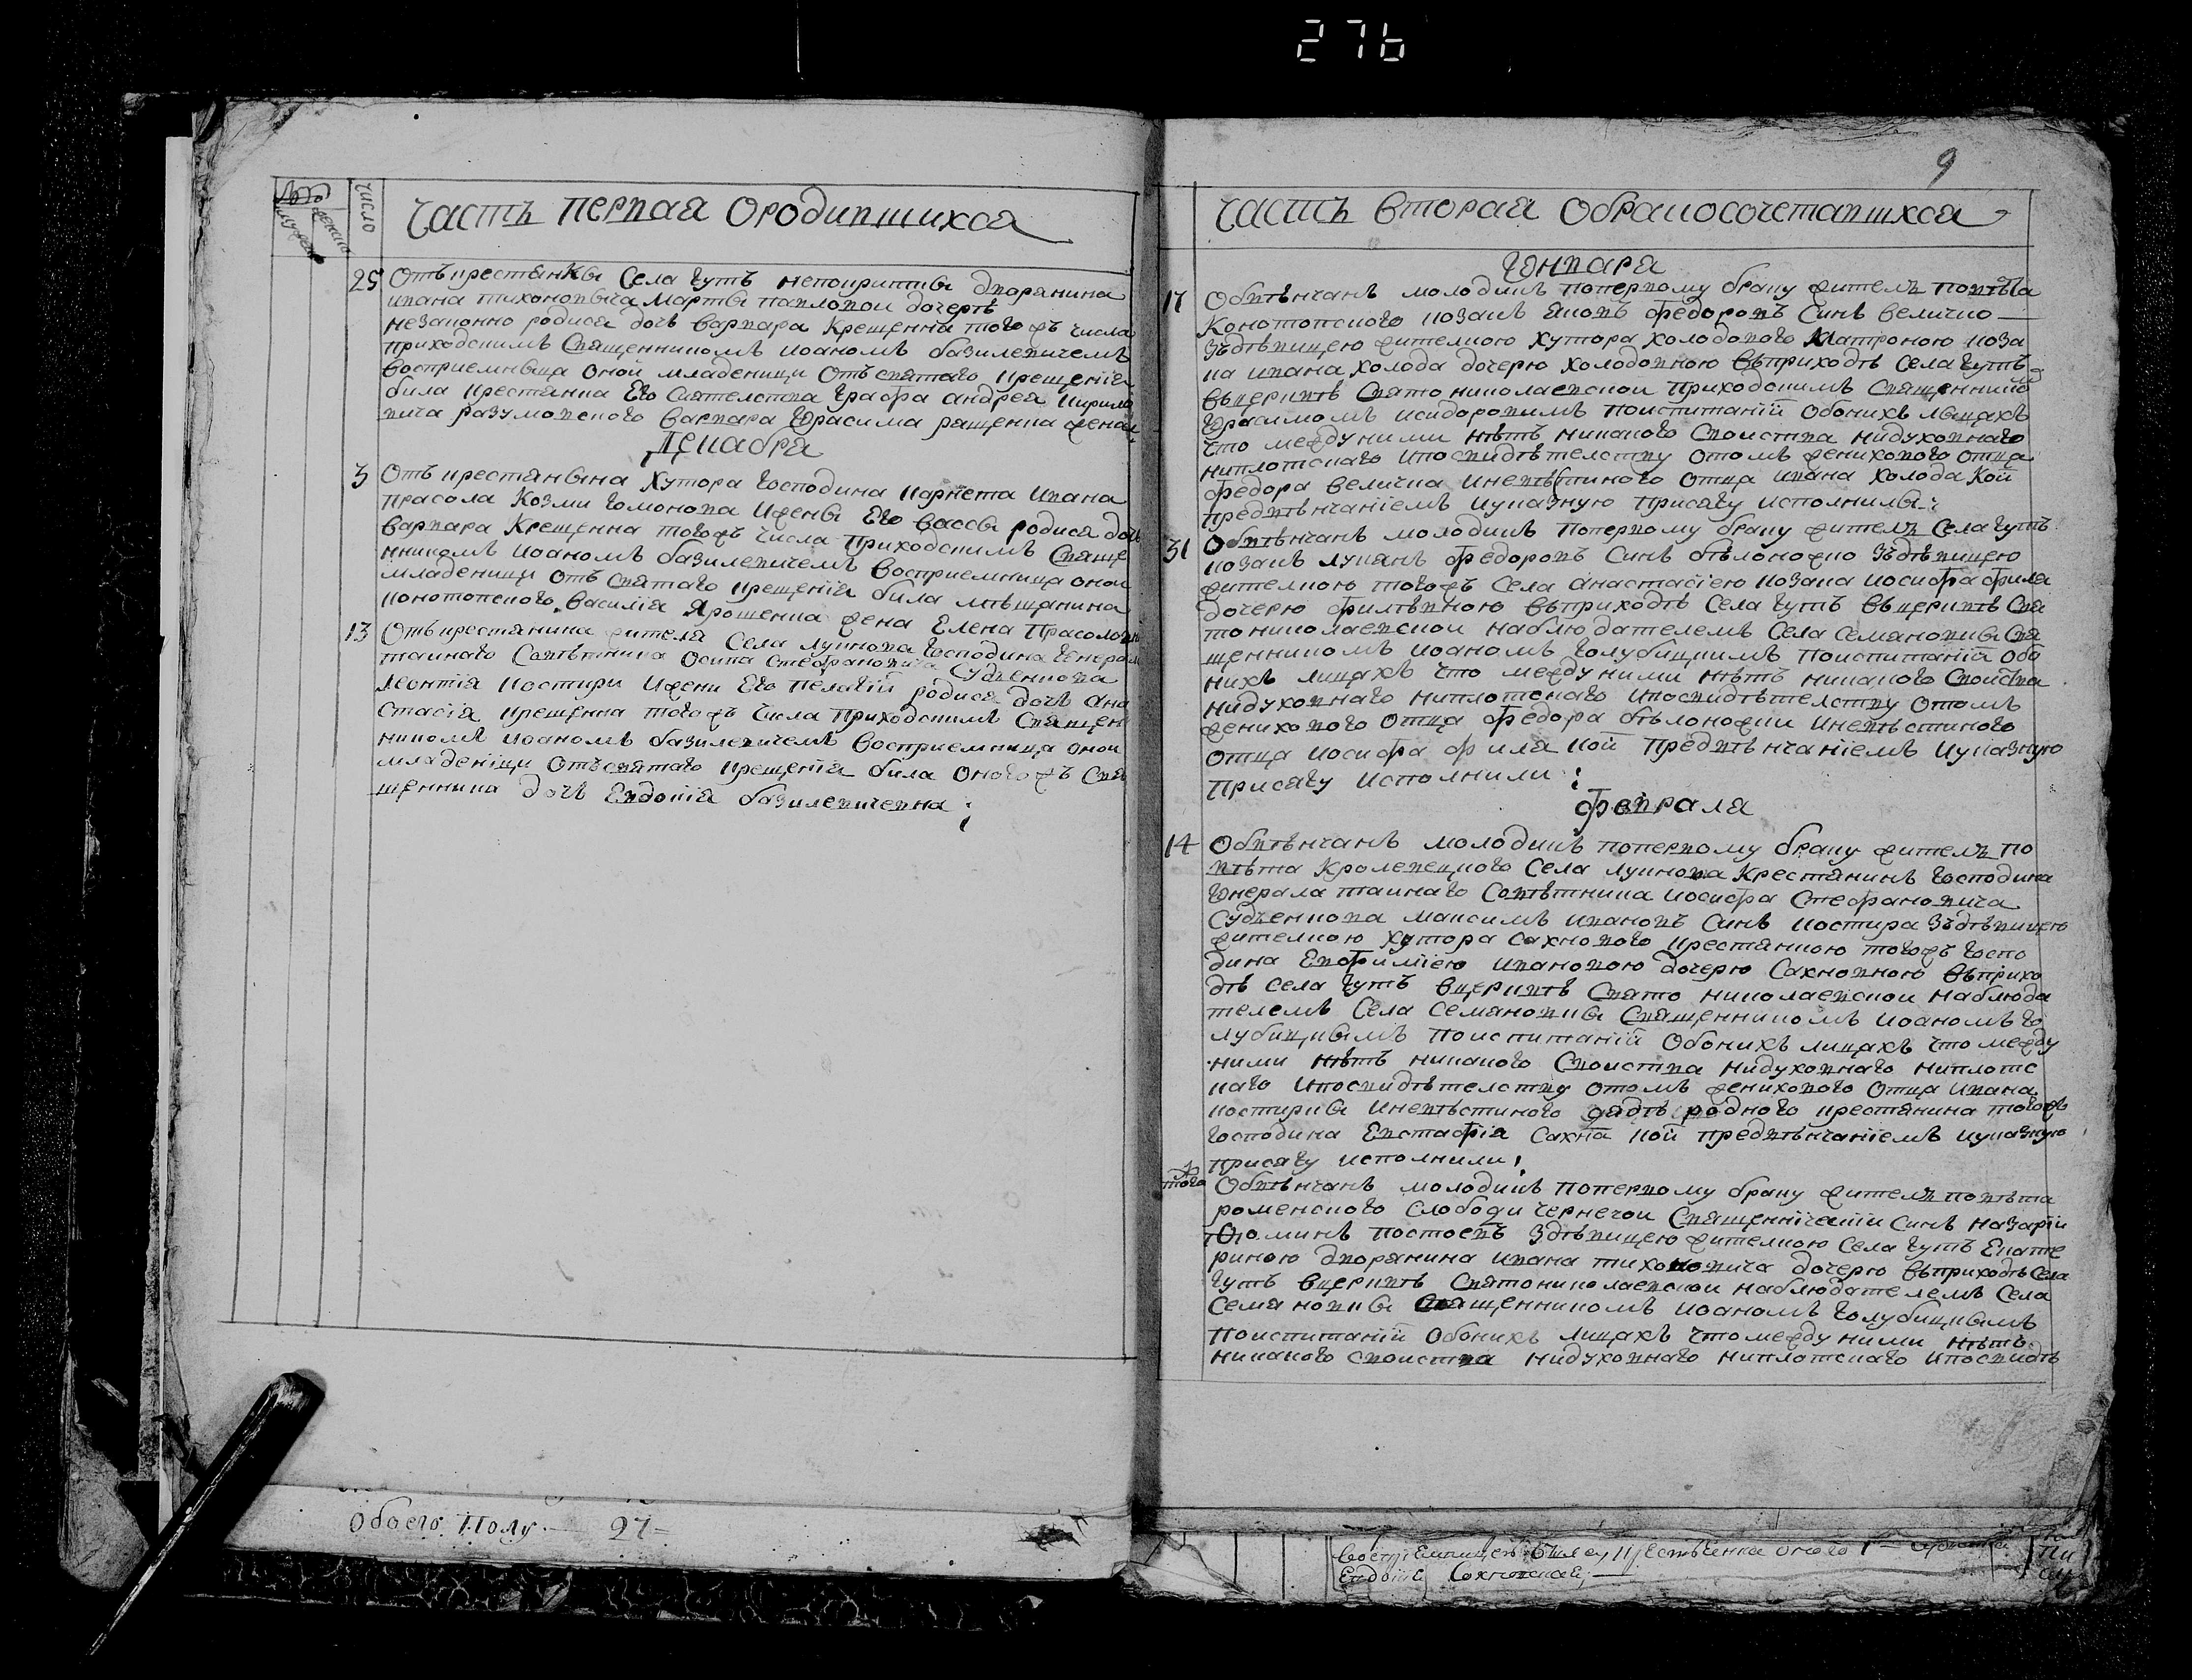 276
число
Часть первая ородившихся
25 Отъ крестянки Села Гутъ непокритки дворянина
ивана тихоновича Марты павловой дочерѣ
незаконно родися дочь варвара крещенна тогожъ числа
приходскимъ Священникомъ иоаномъ базилевичемъ
восприемныца оной младеници Отъ святаго крещенія
била крестянка Его Сиятелства Графа андрея кирило
вича разумовского варвара Юрасима ращенка жена
Декабря
3 Отъ крестянына Хутора Господина карпета ивана
прасола Козми гомонова ижены Его вассы родися доч
варвара Крещенна тогожъ числа приходскимъ Свяще
нникомъ иоаномъ базилевичемъ восприемница оной
младеници отъ Святаго крещенія била мѣщанина
конотопского василія Ярошенка жена Елена прасолов
13 Отъ крестянина жителя Села лукнова Господина Генерал
таинаго Совѣтника осипа стефановича Судиенкова
леонтія костири ижени Его пелагіи родися дочь ана
стасія крещенна тогожъ числа приходскимъ Священ
никомъ иоаномъ базилевичемъ восприемница оной
младеніци отъ святаго крещенія била оногожъ Свя
щенника дочь Евдокія базилевичевна
Обоего Полу — 27 =
9
Часть вторая Обракосочетавшхся
Генваря
17 Обвѣнчанъ молодикъ поперьвому браку жителъ повѣта
Конотопского козакъ яковъ федоровъ Синъ величко
зъдѣвицею жителкою хутора холодового Матроною коза
ка ивана холода дочерю холодовною въприходѣ села Гутъ
въцерквѣ Святониколаевской приходскимъ Священнико
Юрасимомъ исидоровимъ поиспитаній обоихъ лыцахъ
что между ними нѣтъ никакого Своиства нидуховнаго
ниплотскаго ипосвидѣтелству отомъ женихового отца
федора величка иневѣстиного отца ивана холода кой
предвѣнчаніемъ иуказную присягу исполнилы
31 Обвѣнчанъ молодикъ поперьвому браку жителъ Села Гутъ
козакъ лукянъ федоровъ Синъ бѣлоножко зъдѣвицею
жителкою тогожъ Села анастасіею козака иосифа филя
дочерю филѣвною въприходѣ Села Гутъ въцерквѣ Свя
тониколаевской наблюдателемъ Села Семяновки Свя
щенникомъ иоаномъ голубицкимъ поиспитаній обо
нихъ лицахъ что между ними нѣтъ никакого своиства
нидуховнаго ниплотскаго ипосвидѣтелству отомъ
женихового отца федора бѣлоножки иневѣстиного
отца иосифа филя кой предвѣнчаніемъ иуказную
присягу исполнили
Февраля
14 Обвѣнчанъ молодикъ поперьвому браку жителъ по
вѣта Кролевецкого Села лукнова Крестянинъ Господина
Генерала таинаго Совѣтника иосифа Стефановича
Судиенкова максимъ ивановъ Синъ костира зъдѣвицею
жителкою хутора сахнового крестянкою тогожъ Госпо
дина Евфиміею ивановою дочерю Сахновною въприхо
дѣ села Гутъ вцерквѣ Свято николаевской наблюда
телемъ Села Семяновки Священникомъ иоаномъ Го
лубицкымъ поиспитаній обоихъ лицахъ что между
ними нѣтъ никакого Своиства нидуховнаго ниплотс
каго ипосвидѣтелству отомъ женихового отца ивана
костиры иневѣстиного дядѣ родного крестянина тогожъ
Господина Евстафія Сахна кой предвѣнчаніемъ иуказную
присягу исполнили
того Обвѣнчанъ молодикъ поперьвому браку жителъ повѣта
роменского слободи чернечой Священніческій Синъ назарій
постоевъ здѣвицею жителкою Села Гутъ Екате
риною дворянина ивана тихоновича дочерю въприходѣ Села
Гутъ вцерквѣ Святониколаевской наблюдателемъ Села
Семяновки Священникомъ иоаномъ голубицкымъ
поиспитаній обоихъ лицахъ что между ними нѣтъ
никакого своиства нидуховнаго ниплотскаго ипосвидѣ